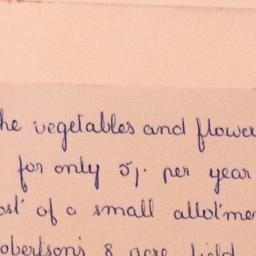 he vegetables and flowe
for only 5/- per year
ost of a small allotme
obertson's 8 acre field